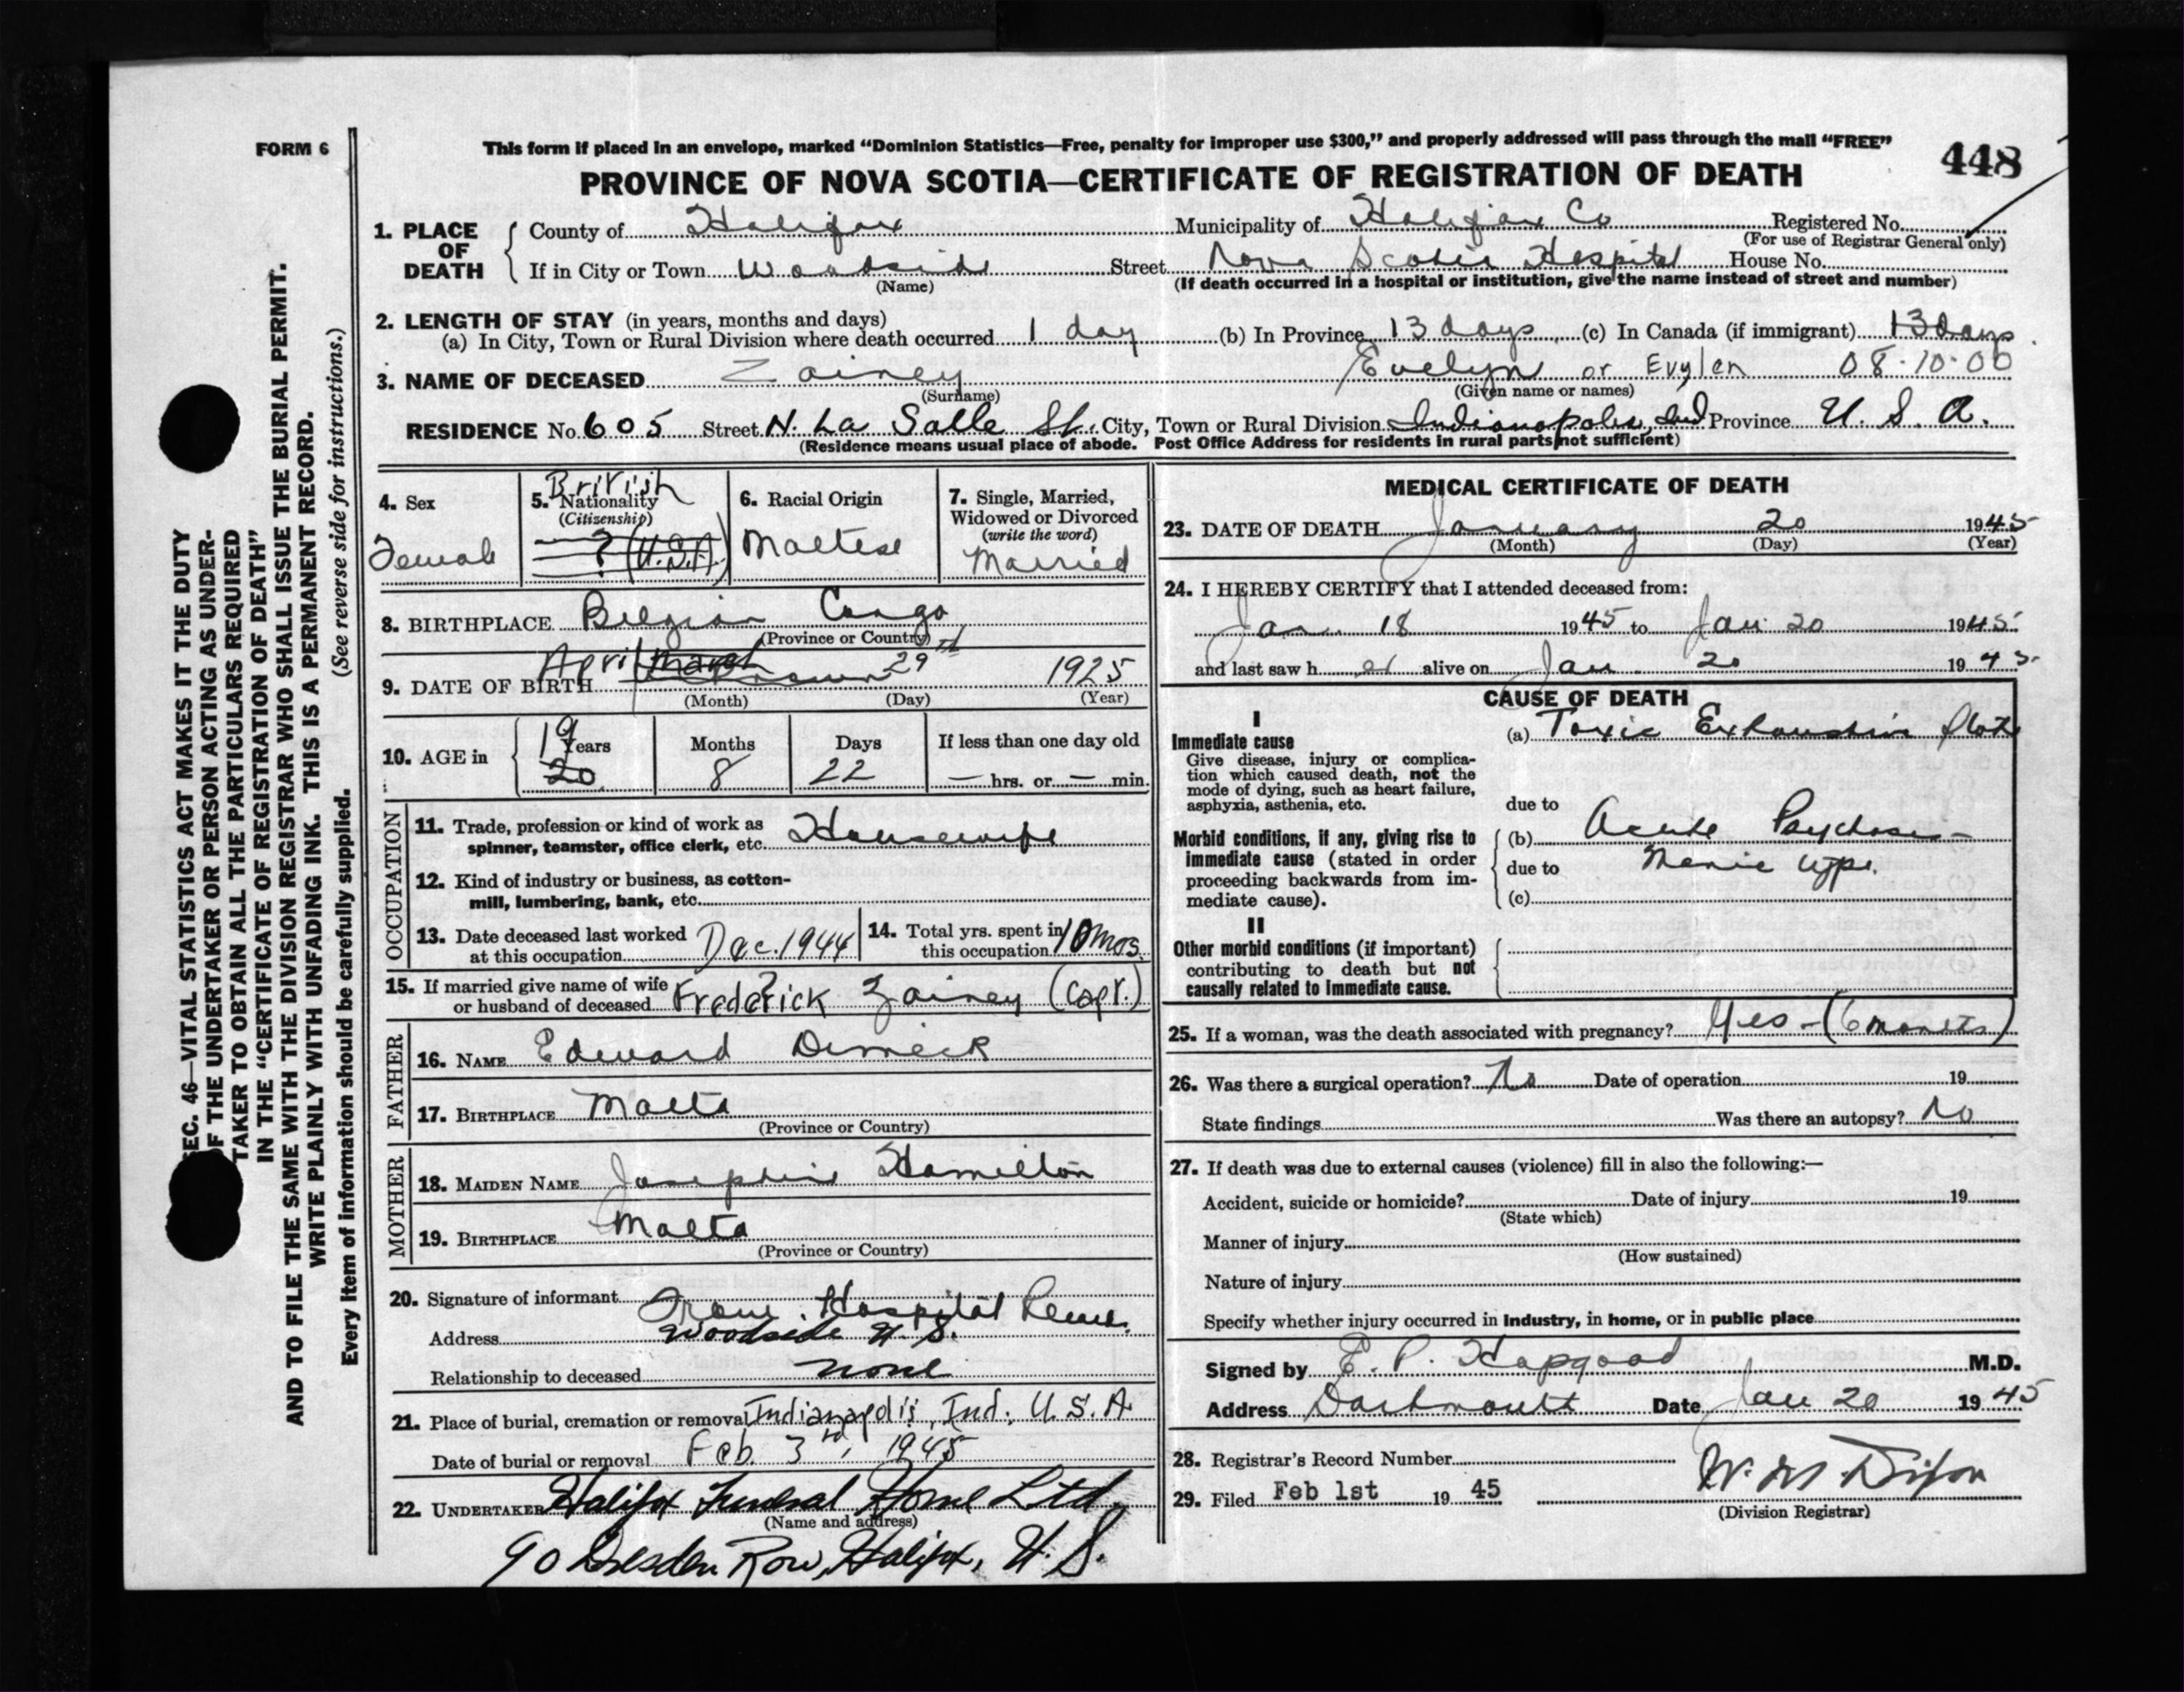 FORM 6
This form if placed in an envelope, marked “Dominion Statistics—Free, penalty for improper use $300,” and properly addressed will pass through the mail “FREE”
448
PROVINCE OF NOVA SCOTIA—CERTIFICATE OF REGISTRATION OF DEATH
1. PLACE OF DEATH
County of Halifax Municipality of Halifax Co Registered No.
(For use of Registrar General only)
If in City or Town Woodside Street Nova Scotia Hospital House No.
(Name) (If death occurred in a hospital or institution, give the name instead of street and number)
2. LENGTH OF STAY (in years, months and days)
(a) In City, Town or Rural Division where death occurred 1 day (b) In Province 13 days (c) In Canada (if immigrant) 13 days
3. NAME OF DECEASED Zainey Evelyn or Evylen 08·10·00
(Surname) (Given name or names)
RESIDENCE No. 605 Street N. La Salle St. City, Town or Rural Division Indianapolis, Ind Province U. S. A.
(Residence means usual place of abode. Post Office Address for residents in rural parts not sufficient)
4. Sex
Female
British
5. Nationality
(Citizenship)
? (U.S.A.)
6. Racial Origin
Maltese
7. Single, Married, Widowed or Divorced
(write the word)
Married
8. BIRTHPLACE Belgian Congo
(Province or Country)
9. DATE OF BIRTH April March 29th 1925
(Month) (Day) (Year)
10. AGE in
19 Years 20
Months 8
Days 22
If less than one day old
— hrs. or — min.
OCCUPATION
11. Trade, profession or kind of work as
spinner, teamster, office clerk, etc. Housewife
12. Kind of industry or business, as cotton-
mill, lumbering, bank, etc.
13. Date deceased last worked
at this occupation Dec. 1944
14. Total yrs. spent in
this occupation 10 mos.
15. If married give name of wife
or husband of deceased Frederick Zainey (Capt.)
FATHER
16. NAME Edward
17. BIRTHPLACE Malta
(Province or Country)
MOTHER
18. MAIDEN NAME Josephine Hamilton
19. BIRTHPLACE Malta
(Province or Country)
20. Signature of informant From Hospital
Address Woodside N. S.
Relationship to deceased none
21. Place of burial, cremation or removal Indianapolis, Ind. U. S. A
Date of burial or removal Feb. 3rd, 1945
22. UNDERTAKER Halifax Funeral Home Ltd
(Name and address)
90 Dresden Row, Halifax, N. S.
MEDICAL CERTIFICATE OF DEATH
23. DATE OF DEATH January 20 1945
(Month) (Day) (Year)
24. I HEREBY CERTIFY that I attended deceased from:
Jan. 18 1945 to Jan 20 1945
and last saw her alive on Jan. 20 1945
CAUSE OF DEATH
I
Immediate cause
Give disease, injury or complica-
tion which caused death, not the
mode of dying, such as heart failure,
asphyxia, asthenia, etc.
(a) Toxic Exhaustion State
due to
Morbid conditions, if any, giving rise to
immediate cause (stated in order
proceeding backwards from im-
mediate cause).
(b) Acute Psychosis—
due to Manic type.
(c)
II
Other morbid conditions (if important)
contributing to death but not
causally related to immediate cause.
25. If a woman, was the death associated with pregnancy? Yes – (6 months)
26. Was there a surgical operation? No Date of operation 19
State findings Was there an autopsy? No
27. If death was due to external causes (violence) fill in also the following:—
Accident, suicide or homicide? Date of injury 19
(State which)
Manner of injury
(How sustained)
Nature of injury
Specify whether injury occurred in Industry, in home, or in public place
Signed by E. P. Hapgood M.D.
Address Dartmouth Date Jan 20 1945
28. Registrar's Record Number
29. Filed Feb 1st 19 45 W. M. Dixon
(Division Registrar)
SEC. 46—VITAL STATISTICS ACT MAKES IT THE DUTY
OF THE UNDERTAKER OR PERSON ACTING AS UNDER-
TAKER TO OBTAIN ALL THE PARTICULARS REQUIRED
IN THE “CERTIFICATE OF REGISTRATION OF DEATH”
AND TO FILE THE SAME WITH THE DIVISION REGISTRAR WHO SHALL ISSUE THE BURIAL PERMIT.
WRITE PLAINLY WITH UNFADING INK. THIS IS A PERMANENT RECORD.
Every item of information should be carefully supplied. (See reverse side for instructions.)